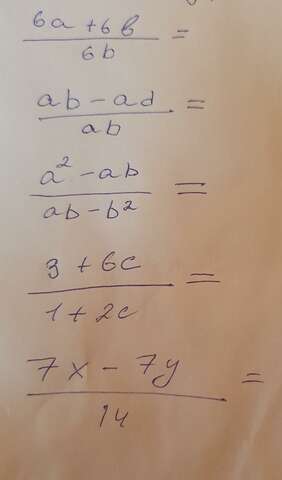 6a + 6b
6b
=
ab - ad
ab
=
a² - ab
ab - b²
=
3 + 6c
1 + 2c
=
7x - 7y
14
=